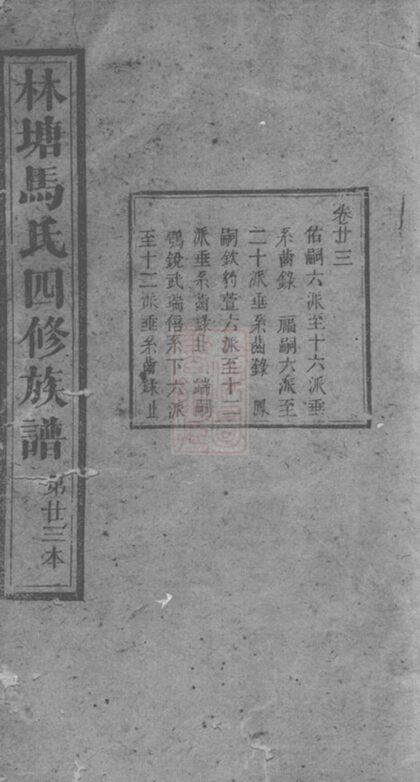 林塘馬氏四修族譜 第廿三本
卷廿三
佑嗣六派至十六派垂
系齒錄 福嗣六派至
二十派垂系齒錄 鳳
嗣欽豹萱六派至十二
派垂系齒錄止 端嗣
鸚銳武瑞僖系下六派
至十二派垂系齒錄止